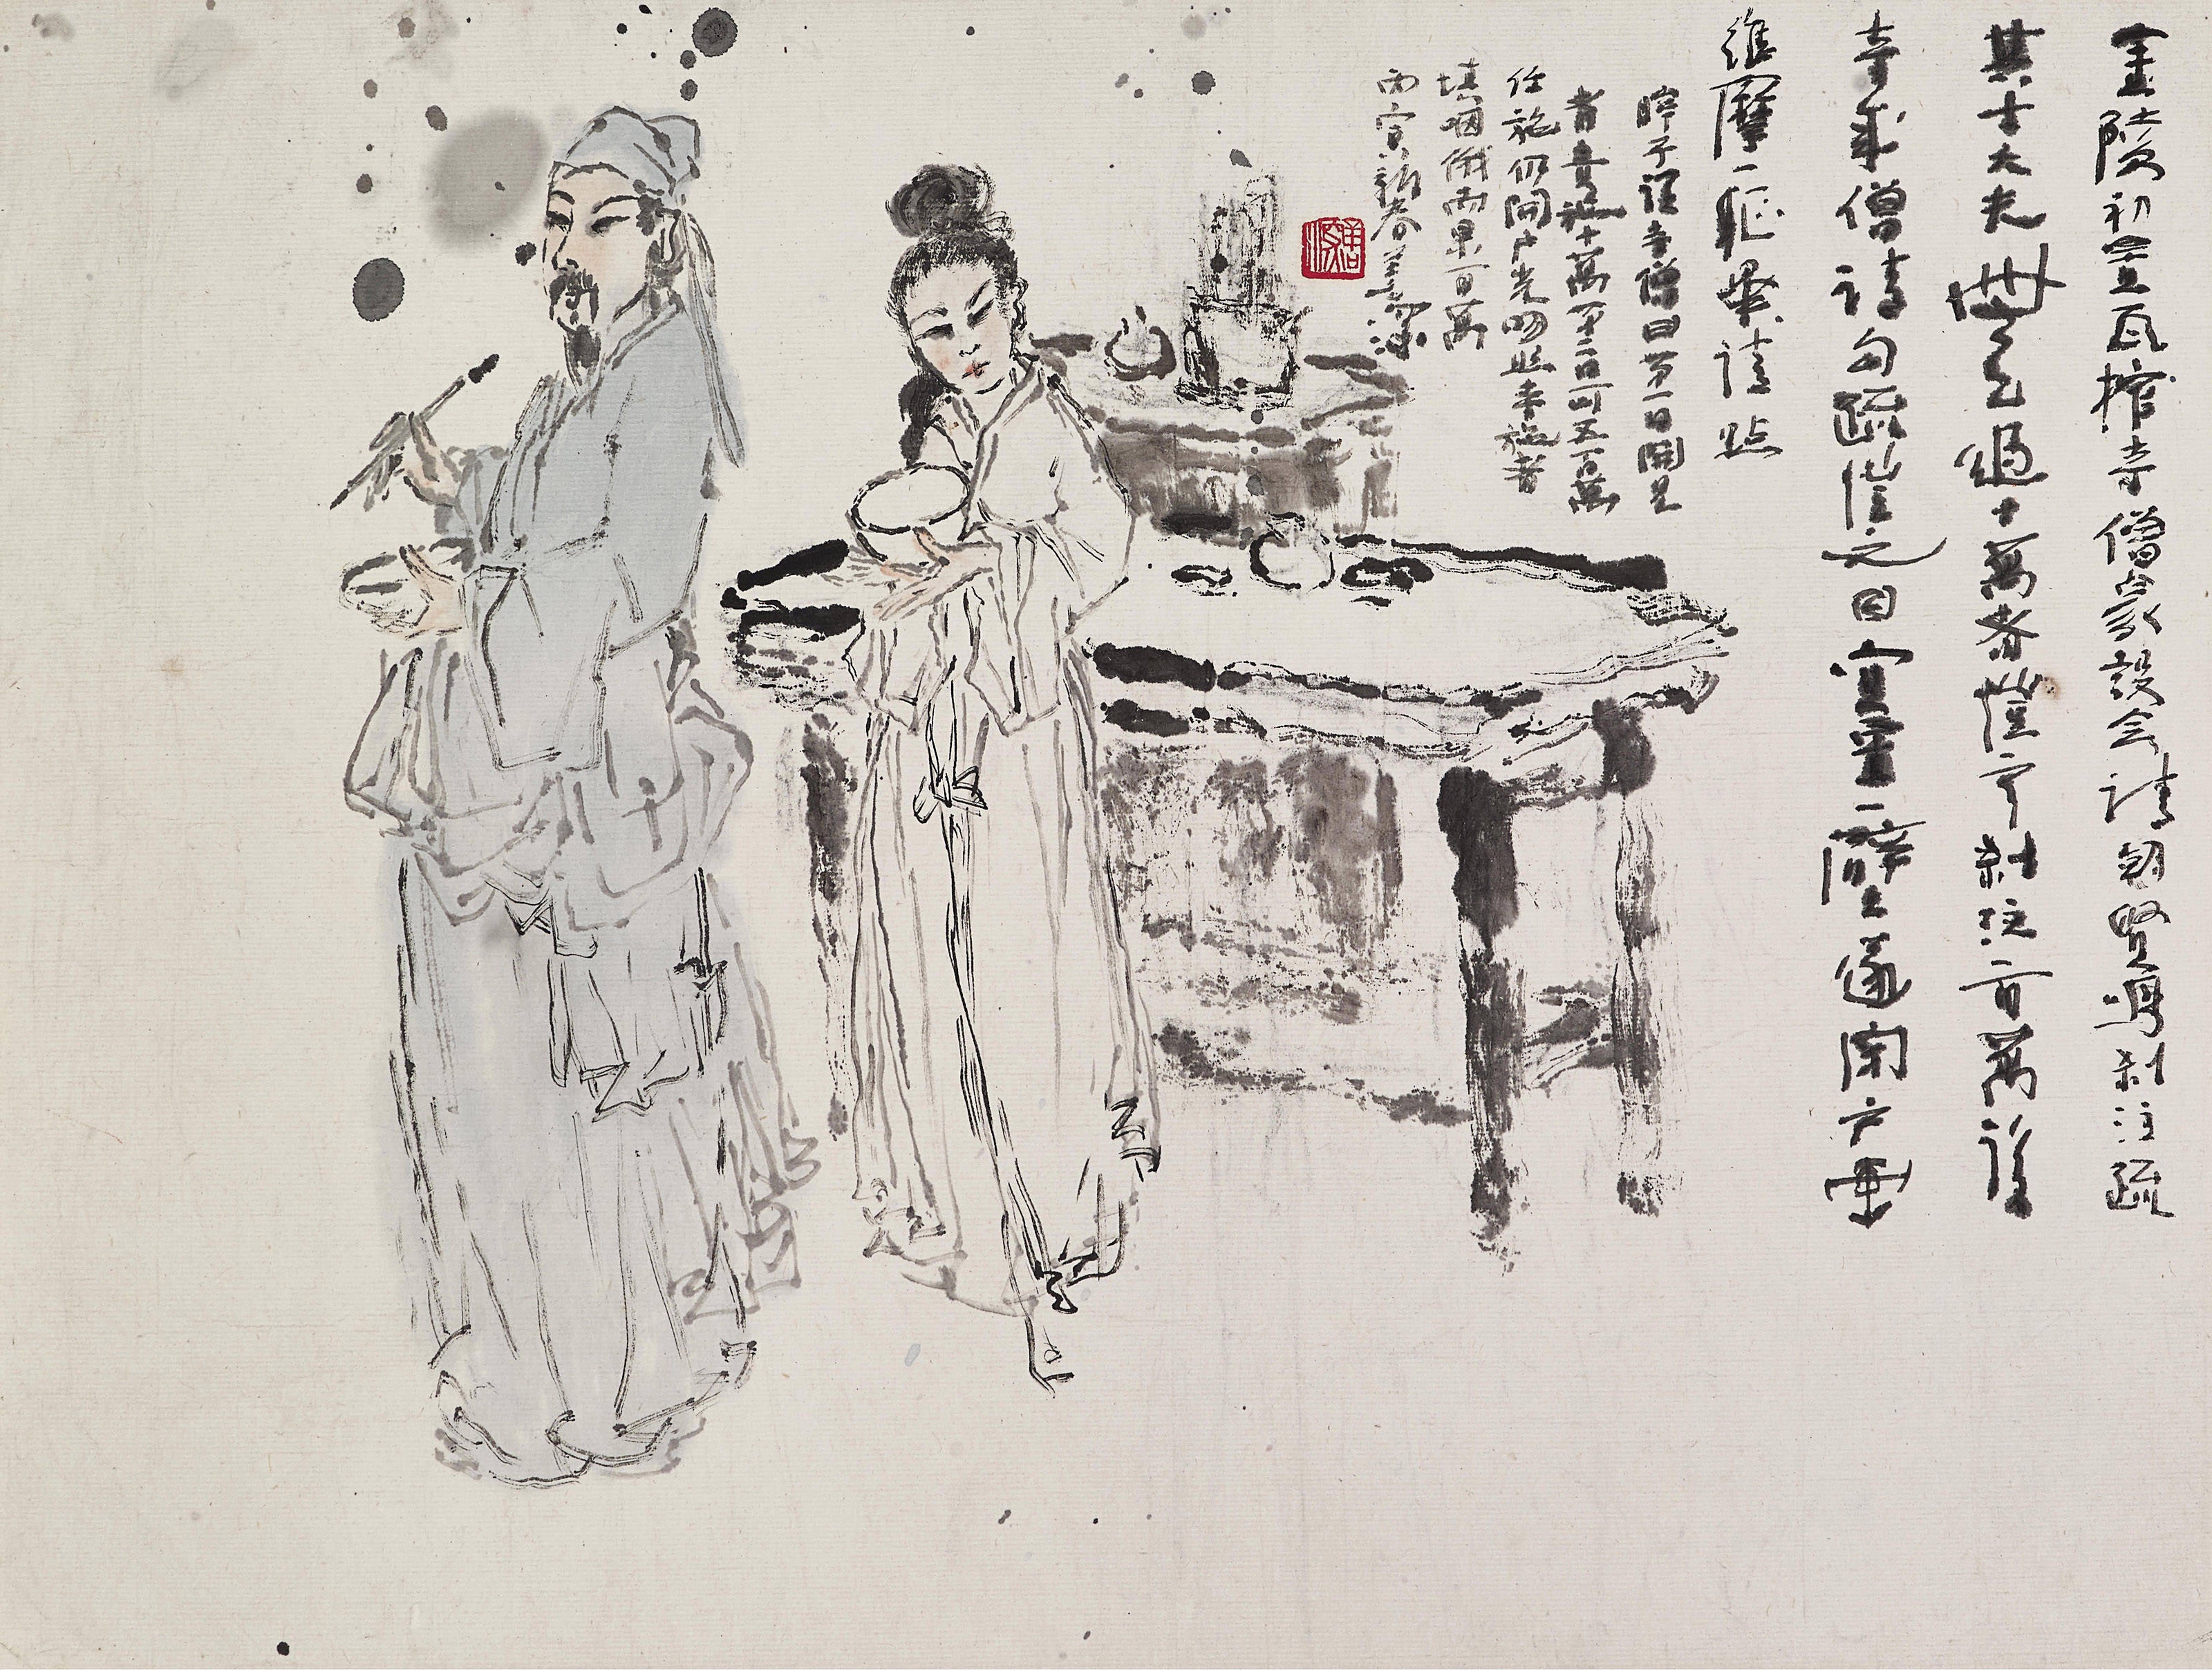 金陵初置瓦棺寺僧眾設會請朝賢鳴剎注疏
其士大夫無過十萬者愷剎注百萬後
寺成僧請勾疏愷之曰宜置一壁遂閉户畫
維摩一軀畢請點
眸子謂寺僧曰第一日開見
者責施十萬第二日可五百萬
任施及開户光明照寺施者
填咽俄而果百萬
丙寅新春